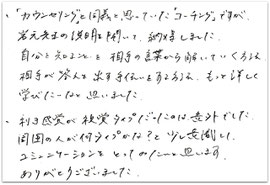 ・「カウンセリング」と同義と思っていた「コーチング」ですが、
岩元先生の説明を聞いて、納得しました。
自分と知ること を 相手の言葉から解いていくろう
相手が答えを出す手伝いをするろう、もっと詳しく
学びたいなと思いました。
・利き感覚が 視覚タイプだったのは意外でした。
周囲の人が何タイプかな？と少し意識して、
コミュニケーションを とってみたいと思います。
ありがとうございました。